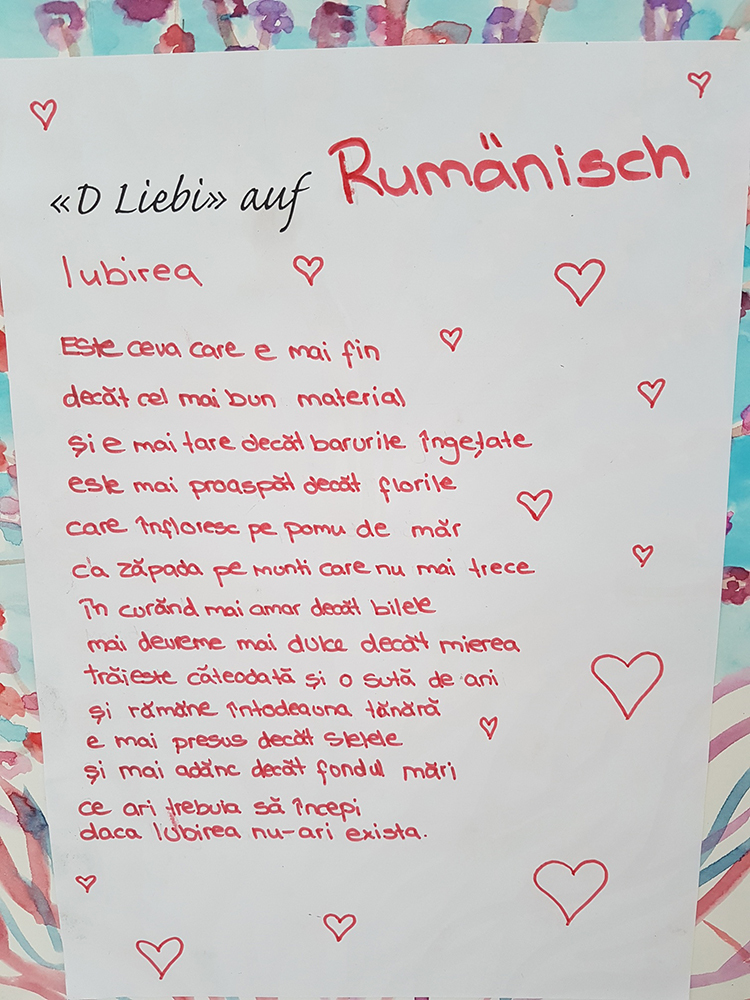 «D Liebi» auf Rumänisch
Iubirea
Este ceva care e mai fin
decăt cel mai bun material
și e mai tare decăt barurile îngețate
este mai proaspăt decăt florile
care înfloresc pe pomu de măr
ca zăpada pe munti care nu mai trece
în curănd mai amar decăt bilele
mai devreme mai dulce decăt mierea
trăieste căteodată și o sută de ani
și rămăne întodeauna tănără
e mai presus decăt stelele
și mai adănc decăt fondul mări
ce ari trebuia să începi
daca Iubirea nu-ari exista.